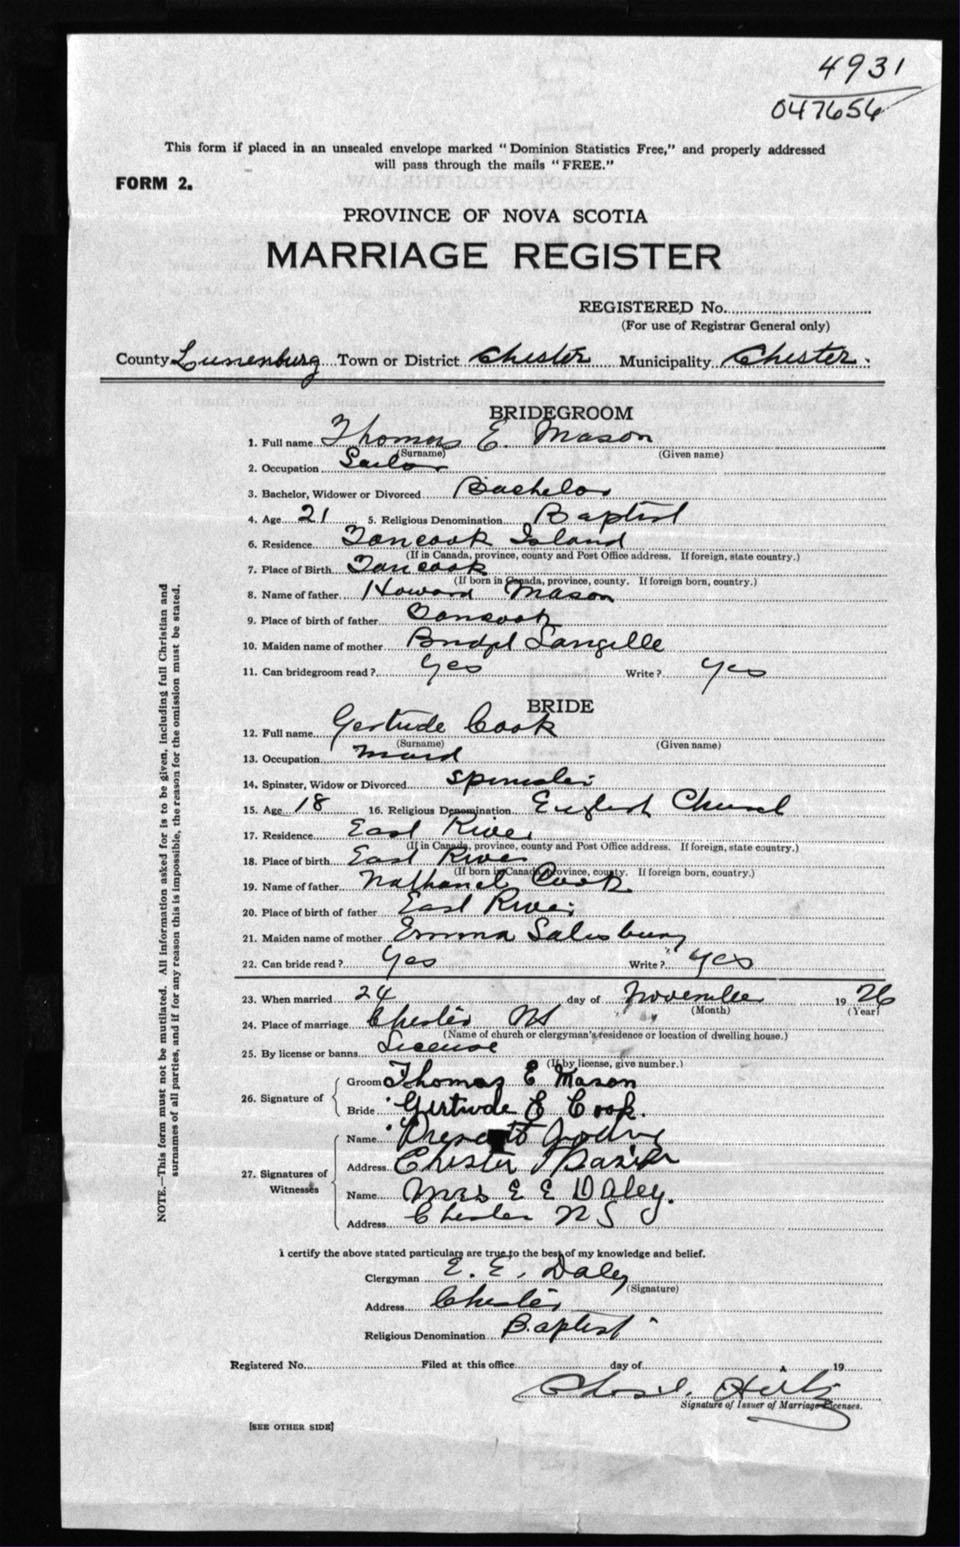 4931
047656
This form if placed in an unsealed envelope marked "Dominion Statistics Free," and properly addressed
will pass through the mails "FREE."
FORM 2.
PROVINCE OF NOVA SCOTIA
MARRIAGE REGISTER
REGISTERED No.
(For use of Registrar General only)
County Lunenburg Town or District Chester Municipality Chester
BRIDEGROOM
1. Full name Thomas E. Mason
(Surname) (Given name)
2. Occupation Sailor
3. Bachelor, Widower or Divorced Bachelor
4. Age 21 5. Religious Denomination Baptist
6. Residence Tancook Island
(If in Canada, province, county and Post Office address. If foreign, state country.)
7. Place of Birth Tancook
(If born in Canada, province, county. If foreign born, country.)
8. Name of father Howard Mason
9. Place of birth of father Tancook
10. Maiden name of mother Langille
11. Can bridegroom read? Yes Write? Yes
BRIDE
12. Full name Gertrude Cook
(Surname) (Given name)
13. Occupation Maid
14. Spinster, Widow or Divorced Spinster
15. Age 18 16. Religious Denomination English Church
17. Residence East River
(If in Canada, province, county and Post Office address. If foreign, state country.)
18. Place of birth East River
(If born in Canada, province, county. If foreign born, country.)
19. Name of father Nathaniel Cook
20. Place of birth of father East River
21. Maiden name of mother Emma Salesbury
22. Can bride read? Yes Write? Yes
23. When married 24 day of November 1926
(Month) (Year)
24. Place of marriage Chester NS
(Name of church or clergyman's residence or location of dwelling house.)
25. By license or banns License
(If by license, give number.)
26. Signature of
Groom Thomas E Mason
Bride Gertrude E Cook.
27. Signatures of Witnesses
Name Prescott
Address Chester Basin
Name Mrs E E Daley.
Address Chester NS
I certify the above stated particulars are true to the best of my knowledge and belief.
Clergyman E. E. Daley
(Signature)
Address Chester
Religious Denomination Baptist
Registered No. Filed at this office day of 19
Signature of Issuer of Marriage Licenses.
[SEE OTHER SIDE]
NOTE.—This form must not be mutilated. All information asked for is to be given, including full Christian and
surnames of all parties, and if for any reason this is impossible, the reason for the omission must be stated.